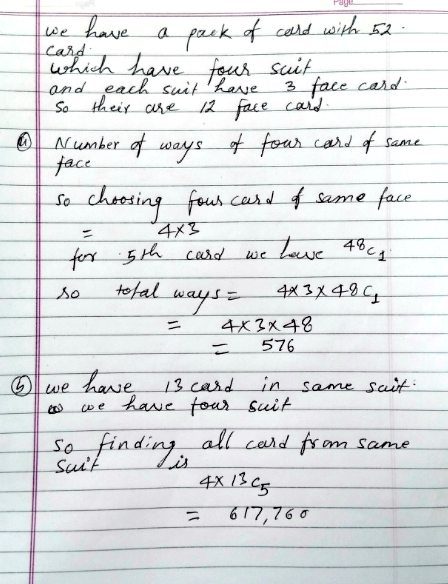 Page
we have a pack of card with 52.
card.
which have four suit
and each suit have 3 face card.
So their are 12 face card.
(a) Number of ways of four card of same
face
So choosing four card of same face
= 4x3
for 5th card we have 48C1
so total ways = 4x3x48C1
= 4x3x48
= 576
(b) we have 13 card in same suit.
we have four suit
So finding all card from same
Suit is
4x13C5
= 617,760